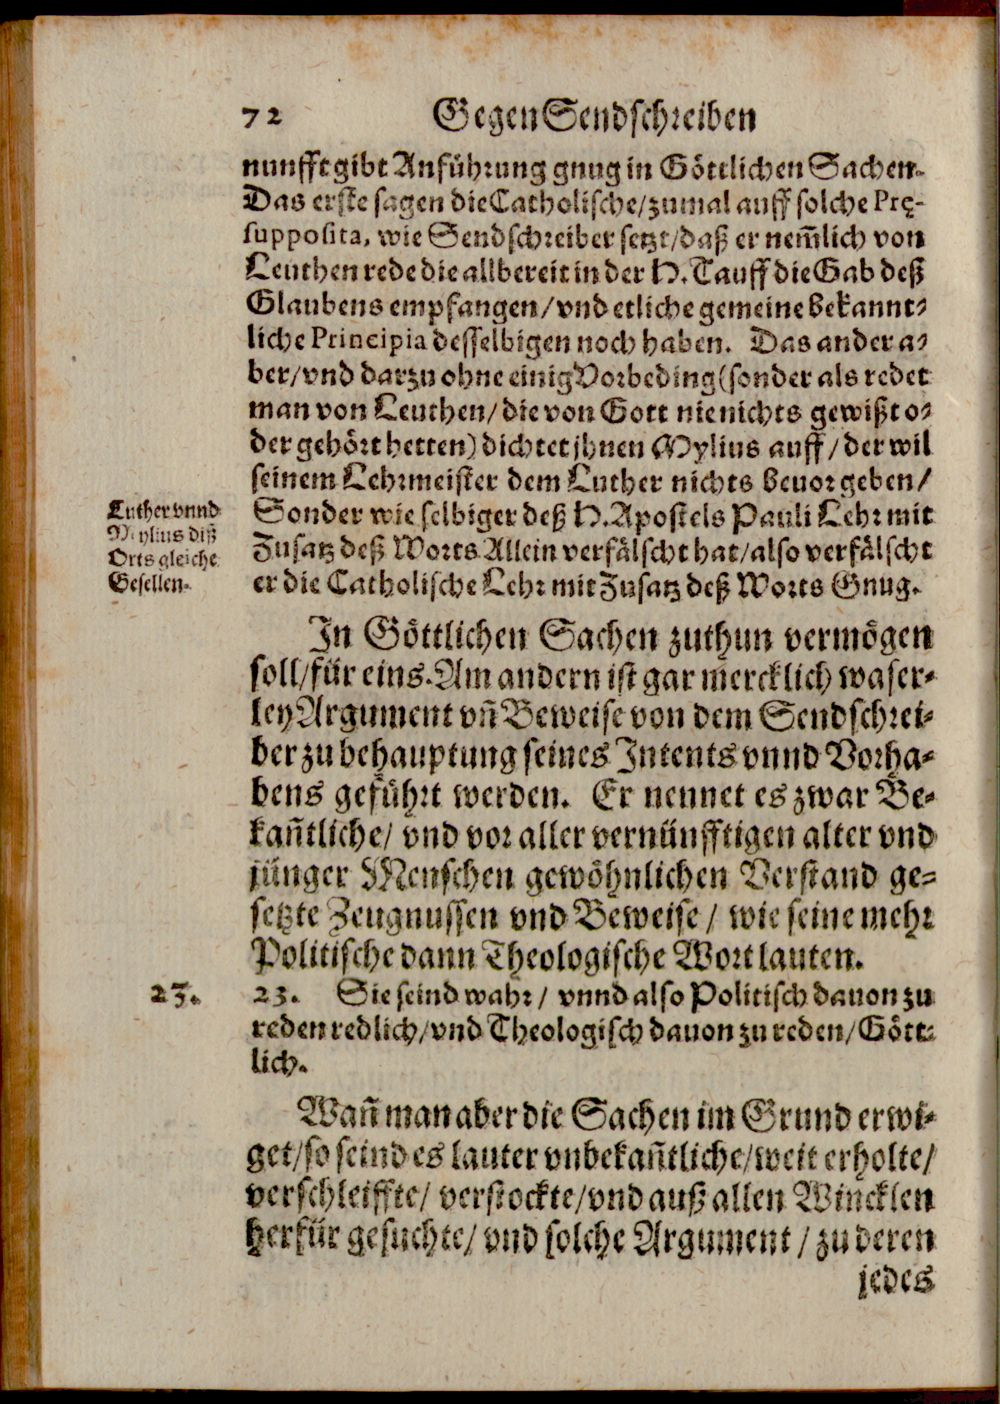 72 GegenSendschreiben
nunfft gibt Anführung gnug in Göttlichen Sachen.
Das erste sagen die Catholische/zumal auff solche Prę-
supposita, wie Sendschreiber setzt/daß er nem̃lich von
Leuthen rede die allbereit in der H. Tauff die Gab deß
Glaubens empfangen/vnd etliche gemeine bekannt-
liche Principia desselbigen noch haben. Das ander a-
ber/vnd darzu ohne einig Vorbeding (sonder als redet
man von Leuthen/die von Gott nie nichts gewißt o-
der gehört hetten) dichtet jhnen Mylius auff/der wil
seinem Lehrmeister dem Luther nichts beuor geben/
Sonder wie selbiger deß H. Apostels Pauli Lehr mit
Zusatz deß Worts Allein verfälscht hat/also verfälscht
er die Catholische Lehr mit Zusatz deß Worts Gnug.
Luther vnnd
Mylius diß
Orts gleiche
Gesellen.
In Göttlichen Sachen zuthun vermögen
soll/für eins. Am andern ist gar mercklich waser-
ley Argument vñ Beweise von dem Sendschrei-
ber zu behauptung seines Intents vnnd Vorha-
bens geführt werden. Er nennet es zwar Be-
kañtliche/ vnd vor aller vernünfftigen alter vnd
jünger Menschen gewöhnlichen Verstand ge-
setzte Zeugnussen vnd Beweise / wie seine mehr
Politische dann Theologische Wort lauten.
23.
23. Sie seind wahr / vnnd also Politisch dauon zu
reden redlich/vnd Theologisch dauon zu reden/Gött-
lich.
Wañ man aber die Sachen im Grund erwi-
get/so seind es lauter vnbekañtliche/weit erholte/
verschleiffte/ verstockte/vnd auß allen Wincklen
herfür gesuchte/ vnd solche Argument / zu deren
jedes